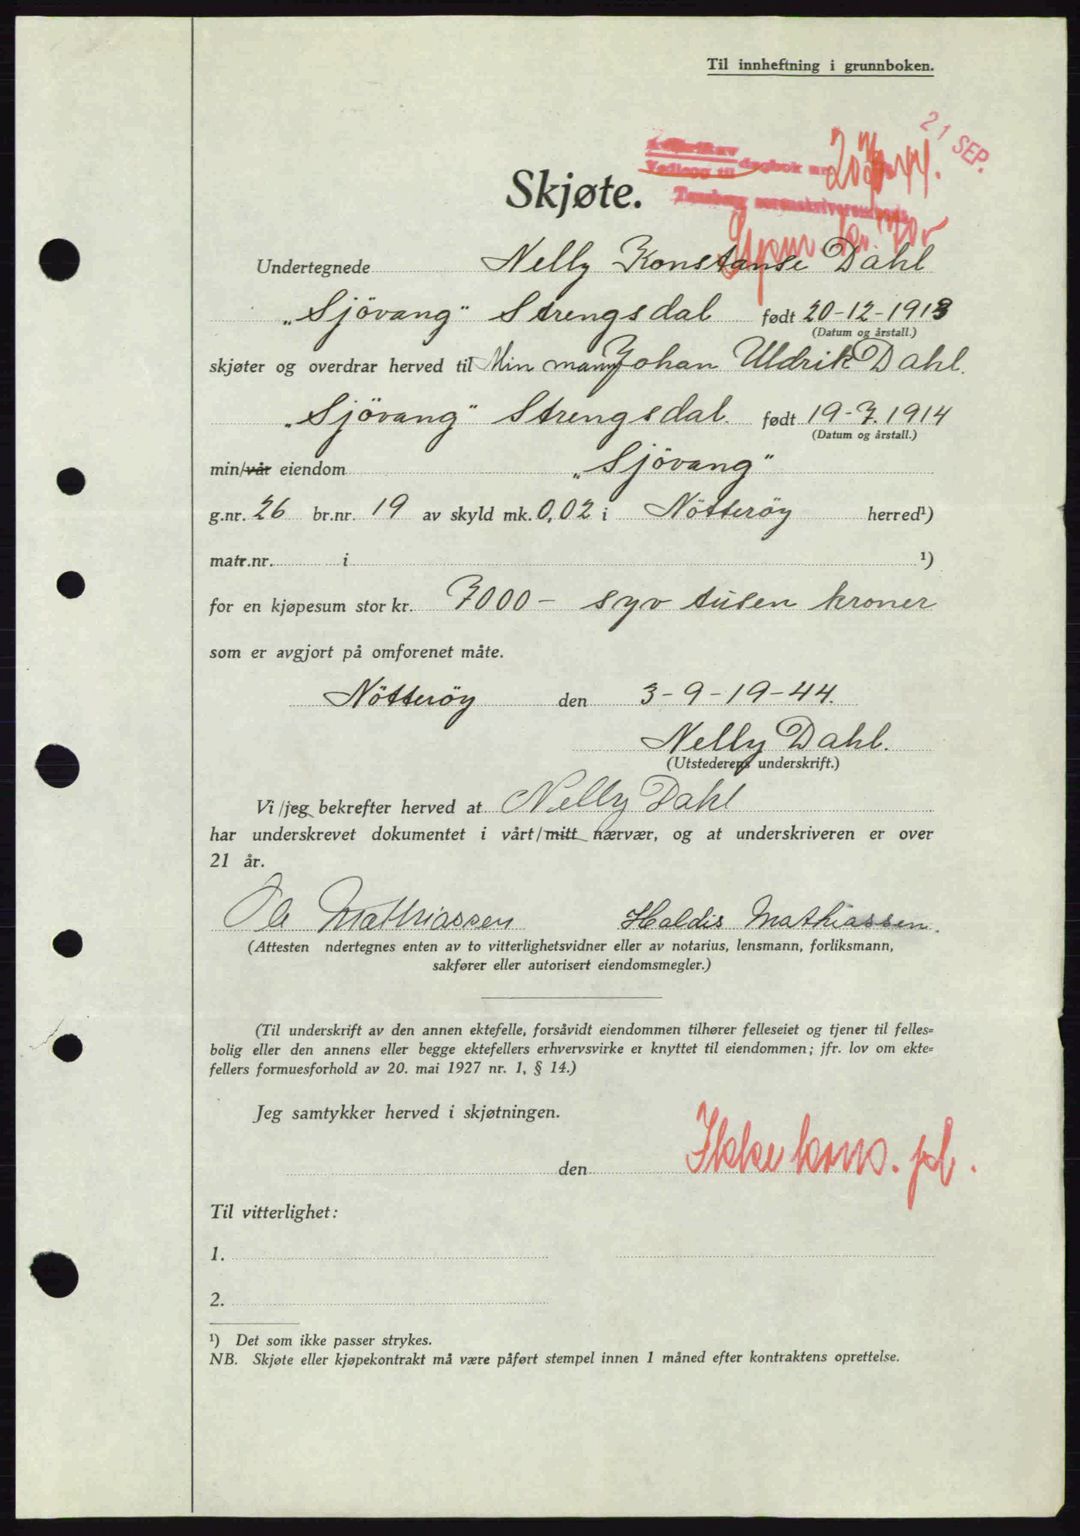 Til innheftning i grunnboken.
21 SEP.
Vedlegg til dagbok nr.
Tønsberg sorenskriverembede
Skjøte.
Undertegnede Nelly Konstanse Dahl
„Sjövang" Strengsdal født 20-12-1913
(Datum og årstall.)
skjøter og overdrar herved til Min mann Johan Uldrik Dahl.
„Sjövang" Strengsdal. født 19-7.1914
(Datum og årstall.)
min/vår eiendom „Sjövang"
g.nr. 26 br.nr. 19 av skyld mk. 0,02 i Nötteröy herred¹)
matr.nr. i ¹)
for en kjøpesum stor kr. 7000- syv tusen kroner
som er avgjort på omforenet måte.
Nötteröy den 3-9-19-44.
Nelly Dahl.
(Utstederens underskrift.)
Vi/jeg bekrefter herved at Nelly Dahl
har underskrevet dokumentet i vårt/mitt nærvær, og at underskriveren er over
21 år.
Ole Mathiassen Haldis Mathiassen.
(Attesten ndertegnes enten av to vitterlighetsvidner eller av notarius, lensmann, forliksmann,
sakfører eller autorisert eiendomsmegler.)
(Til underskrift av den annen ektefelle, forsåvidt eiendommen tilhører felleseiet og tjener til felles=
bolig eller den annens eller begge ektefellers erhvervsvirke er knyttet til eiendommen; jfr. lov om ekte=
fellers formuesforhold av 20. mai 1927 nr. 1, § 14.)
Jeg samtykker herved i skjøtningen.
Ikke kons. pl.
den
Til vitterlighet:
1.
2.
¹) Det som ikke passer strykes.
NB. Skjøte eller kjøpekontrakt må være påført stempel innen 1 måned efter kontraktens oprettelse.